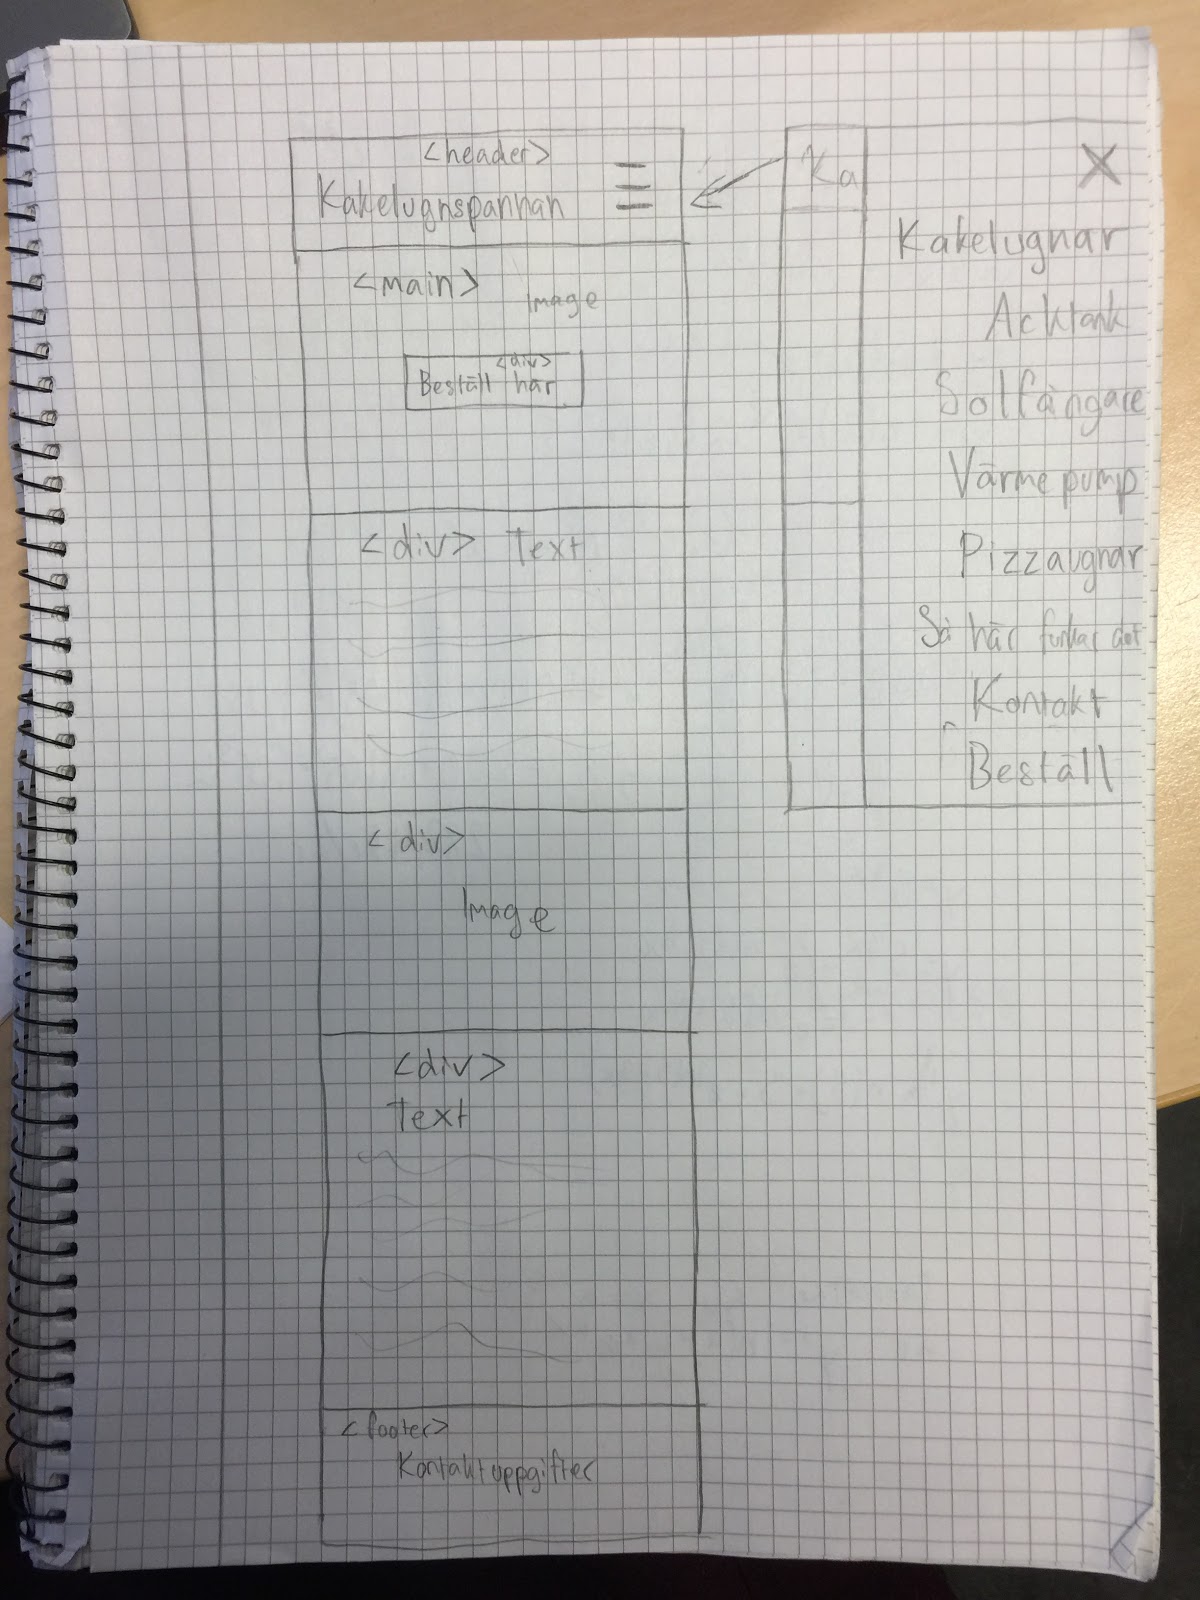 <header>
Kakelugnspannan
<main> Image
<div>
Beställ här
<div> Text
<div>
Image
<div>
Text
<footer>
Kontaktuppgifter
Ka X
Kakelugnar
Acktank
Solfångare
Värmepump
Pizzaugnar
Så här funkar det
Kontakt
Beställ